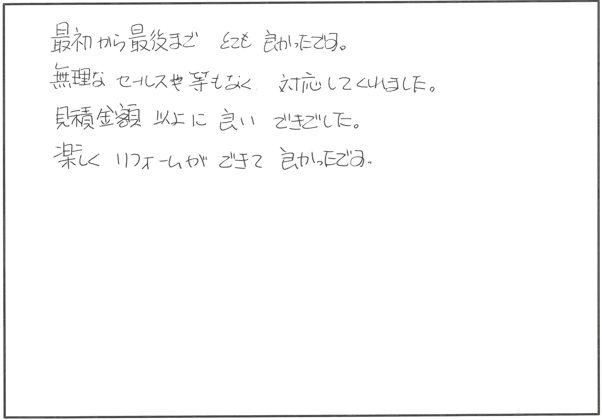 最初から最後まで とても 良かったです。
無理な セールスや等もなく 対応してくれました。
見積金額 以上に 良い できでした。
楽しく リフォームが できて 良かったです。